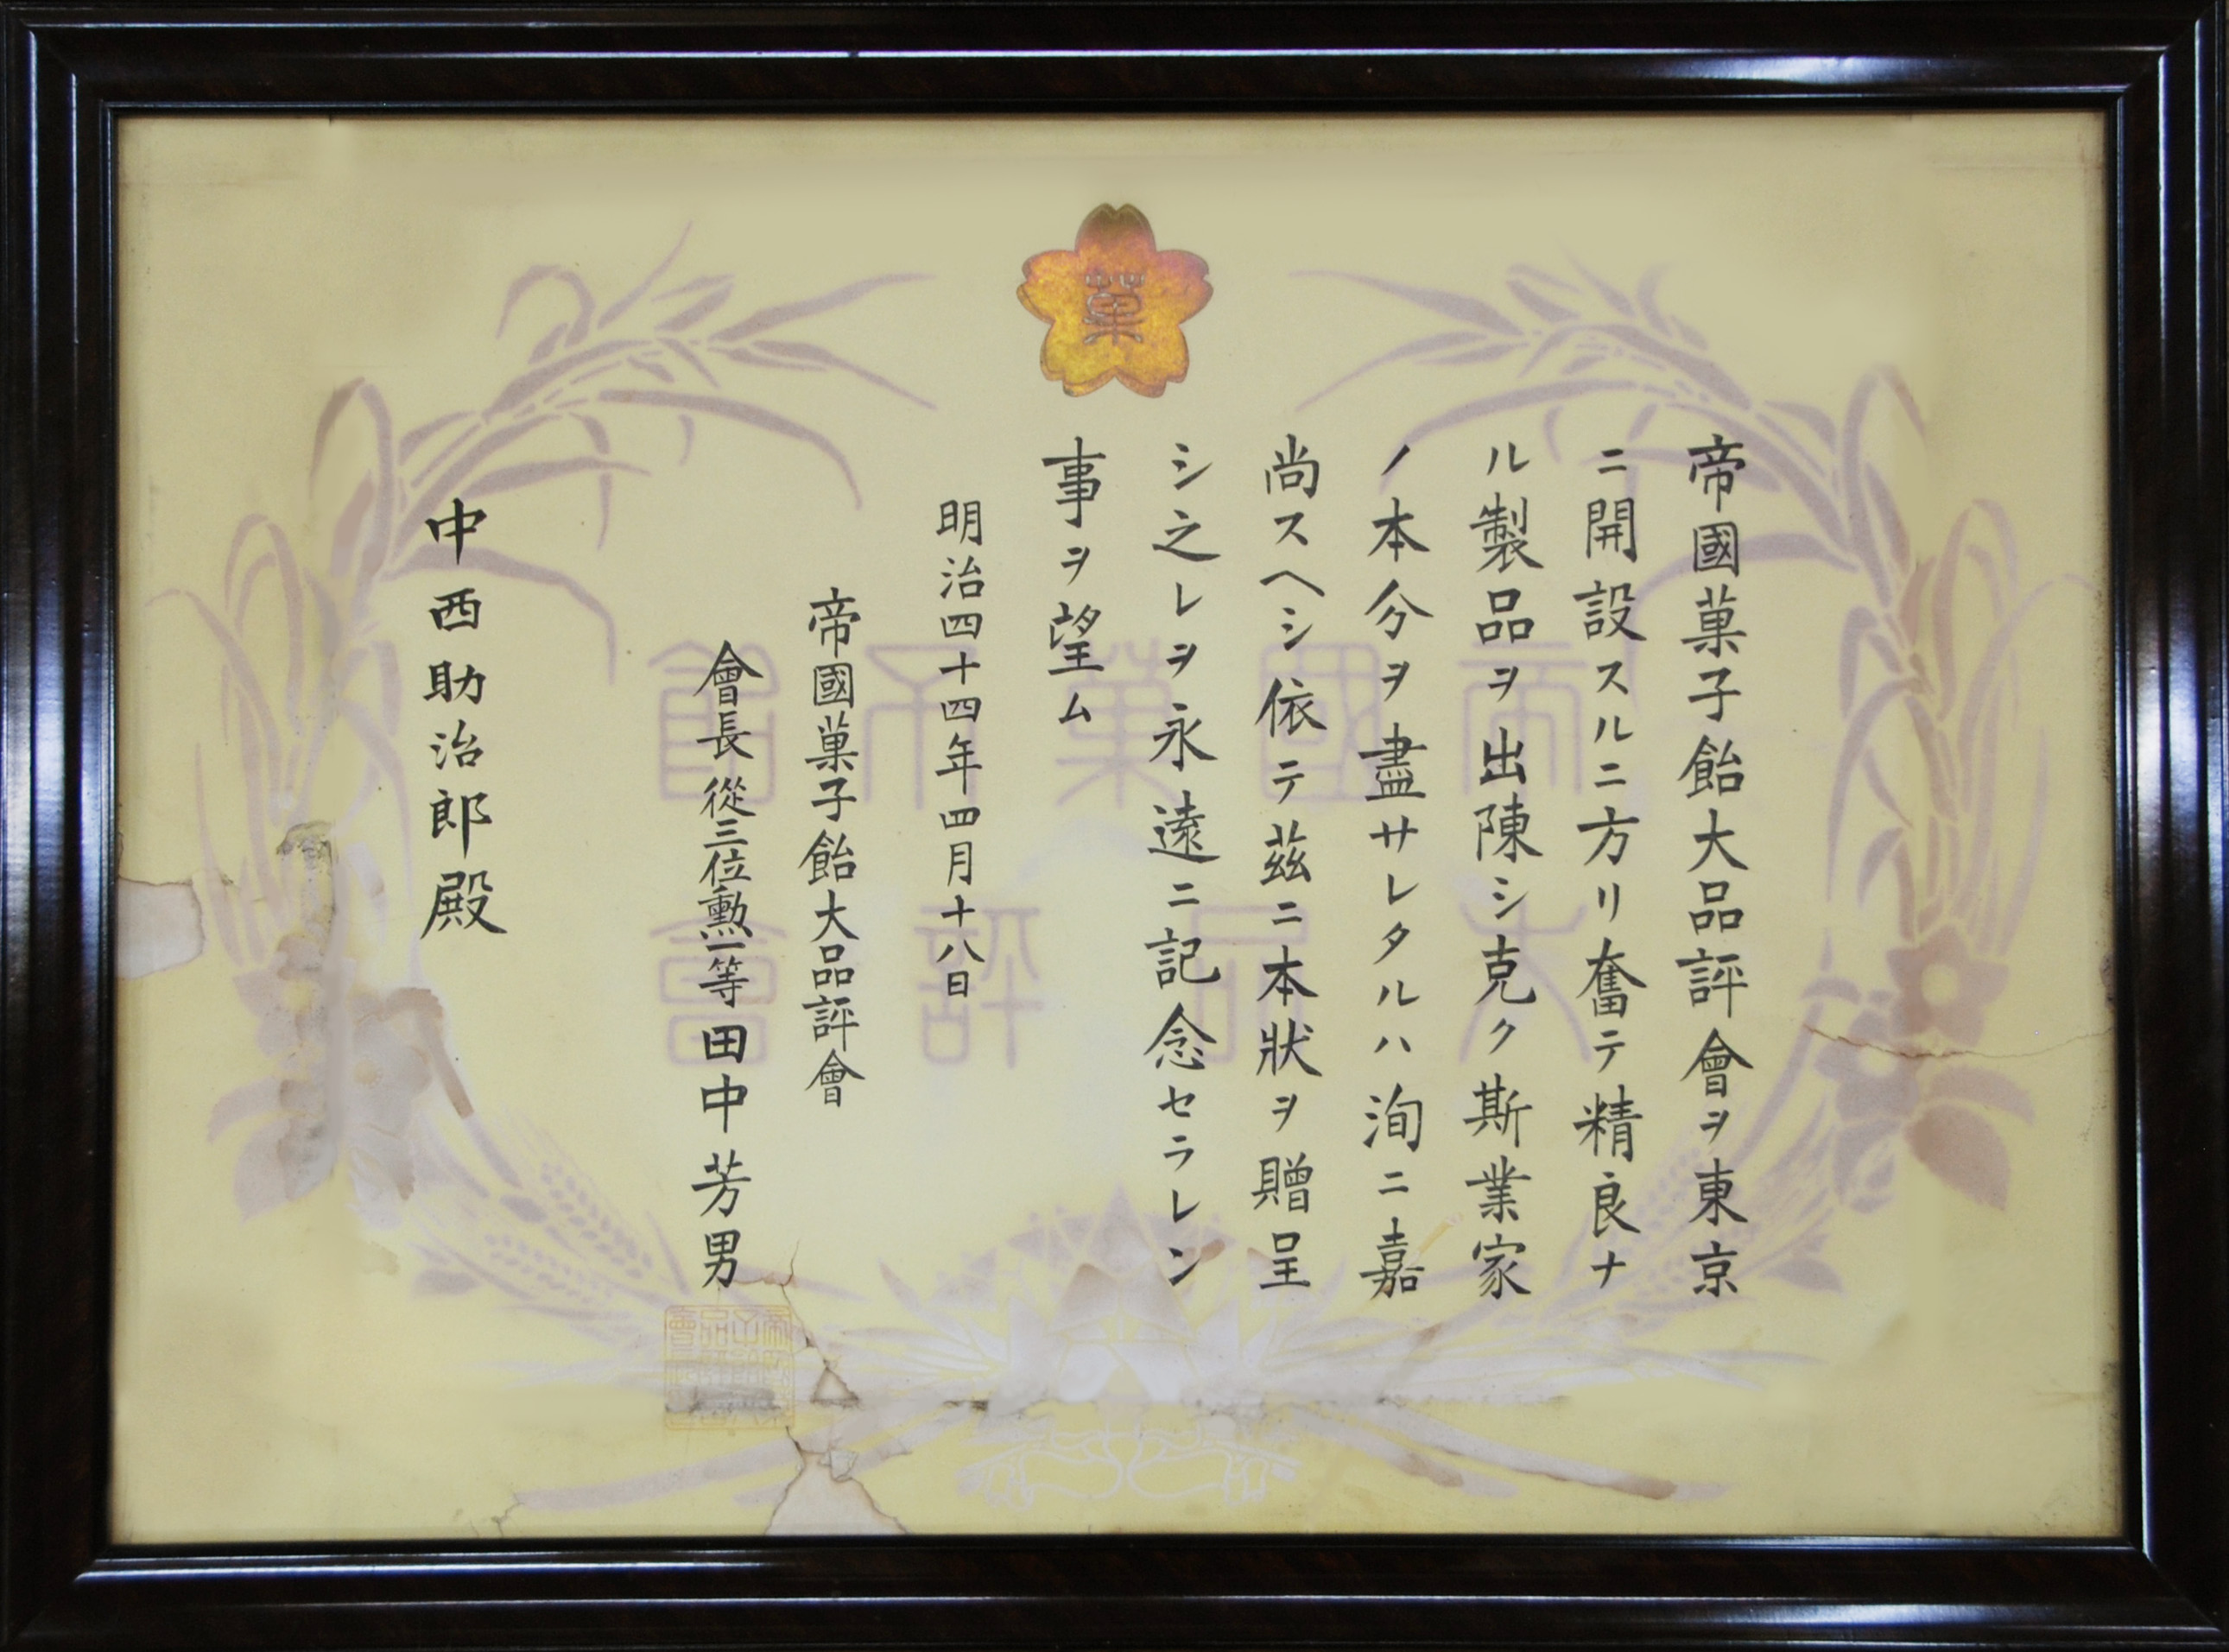 菓
帝國菓子飴大品評會ヲ東京
ニ開設スルニ方リ奮テ精良ナ
ル製品ヲ出陳シ克ク斯業家
ノ本分ヲ盡サレタルハ洵ニ嘉
尚スヘシ依テ茲ニ本狀ヲ贈呈
シ之レヲ永遠ニ記念セラレン
事ヲ望ム
明治四十四年四月十八日
帝國菓子飴大品評會
會長從三位勲一等田中芳男
中西助治郎殿
帝國菓子飴
大品評會